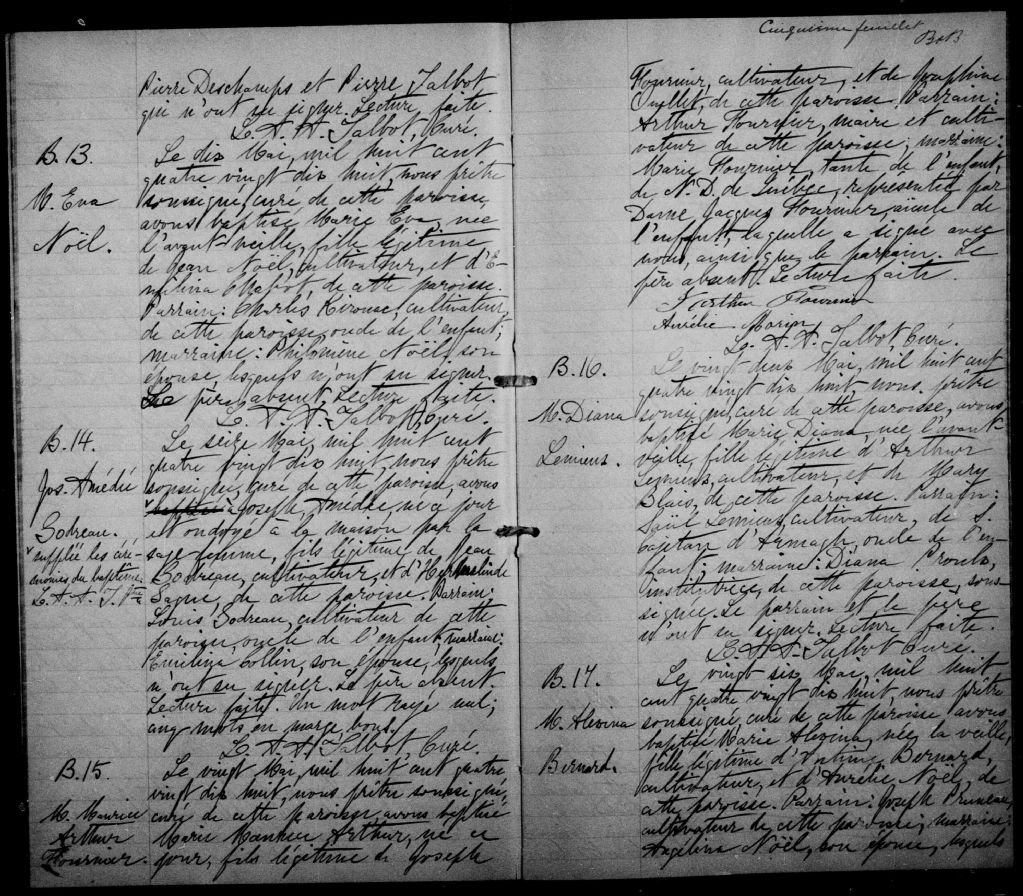 Pierre Deschamps et Pierre Talbot
qui n'ont su signer. Lecture faite.
L. A. A. Talbot, Curé.
B. 13.
M. Eva
Noël.
Le dix Mai, mil huit cent
quatre vingt dix huit, nous prêtre
soussigné, curé de cette paroisse,
avons baptisé Marie Eva, née
l'avant-veille, fille légitime
de Jean Noël, cultivateur, et d'E-
milina Chabot, de cette paroisse.
Parrain: Charles Kirouac, cultivateur,
de cette paroisse, oncle de l'enfant;
marraine: Philomène Noël, son
épouse, lesquels n'ont su signer.
Le père absent. Lecture faite.
L. A. A. Talbot, Curé.
B. 14.
Jos. Amédé
Bodreau.
v suppléé les céré-
monies du baptême.
L. A. A. T. Ptre
Le seize Mai, mil huit cent
quatre vingt dix huit, nous prêtre
soussigné, curé de cette paroisse, avons
v baptisé à Joseph, Amédée né ce jour
et ondoyé à la maison par la
sage femme, fils légitime de Jean
Bodreau, cultivateur, et d'Hermelinde
Gagné, de cette paroisse. Parrain:
Louis Bodreau, cultivateur de cette
paroisse, oncle de l'enfant; marraine:
Emilina Collin, son épouse, lesquels
n'ont su signer. Le père absent.
Lecture faite. Un mot rayé nul;
cinq mots en marge bons.
L. A. A. Talbot, Curé.
B. 15.
M. Maurice
Arthur
Fournier.
Le vingt Mai, mil huit cent quatre
vingt dix huit, nous prêtre soussigné,
curé de cette paroisse, avons baptisé
Marie Maurice Arthur, né ce
jour, fils légitime de Joseph
Cinquième feuillet
B&B
Fournier, cultivateur, et de Joséphine
Ouellet, de cette paroisse. Parrain:
Arthur Fournier, maire et culti-
vateur de cette paroisse; marraine:
Marie Fournier, tante de l'enfant,
de N. D. de Québec, représentée par
Dame Jacques Fournier, aïeule de
l'enfant, laquelle a signé avec
nous, ainsi que le parrain. Le
père absent. Lecture faite.
Arthur Fournier
Aurélie Morin
L. A. A. Talbot Curé.
B. 16.
M. Diana
Lemieux.
Le vingt deux Mai, mil huit cent
quatre vingt dix huit, nous prêtre
soussigné, curé de cette paroisse, avons
baptisé Marie, Diana, née l'avant-
veille, fille légitime d'Arthur
Lemieux, cultivateur, et de Mary
Blais, de cette paroisse. Parrain:
Saül Lemieux, cultivateur, de S.
Cajetan d'Armagh, oncle de l'en-
fant: marraine: Diana Proulx,
institutrice, de cette paroisse, sous-
signée. Le parrain et le père
n'ont su signer. Lecture faite.
L. A. A. Talbot Curé.
B. 17.
M. Alexina
Bernard.
Le vingt six Mai, mil huit
cent quatre vingt dix huit, nous prêtre
soussigné, curé de cette paroisse, avons
baptisé Marie Alexina, née la veille,
fille légitime d'Antime Bernard,
cultivateur, et d'Aurélie Noël, de
cette paroisse. Parrain: Joseph Pruneau,
cultivateur de cette paroisse; marraine:
Angélina Noël, son épouse, lesquels